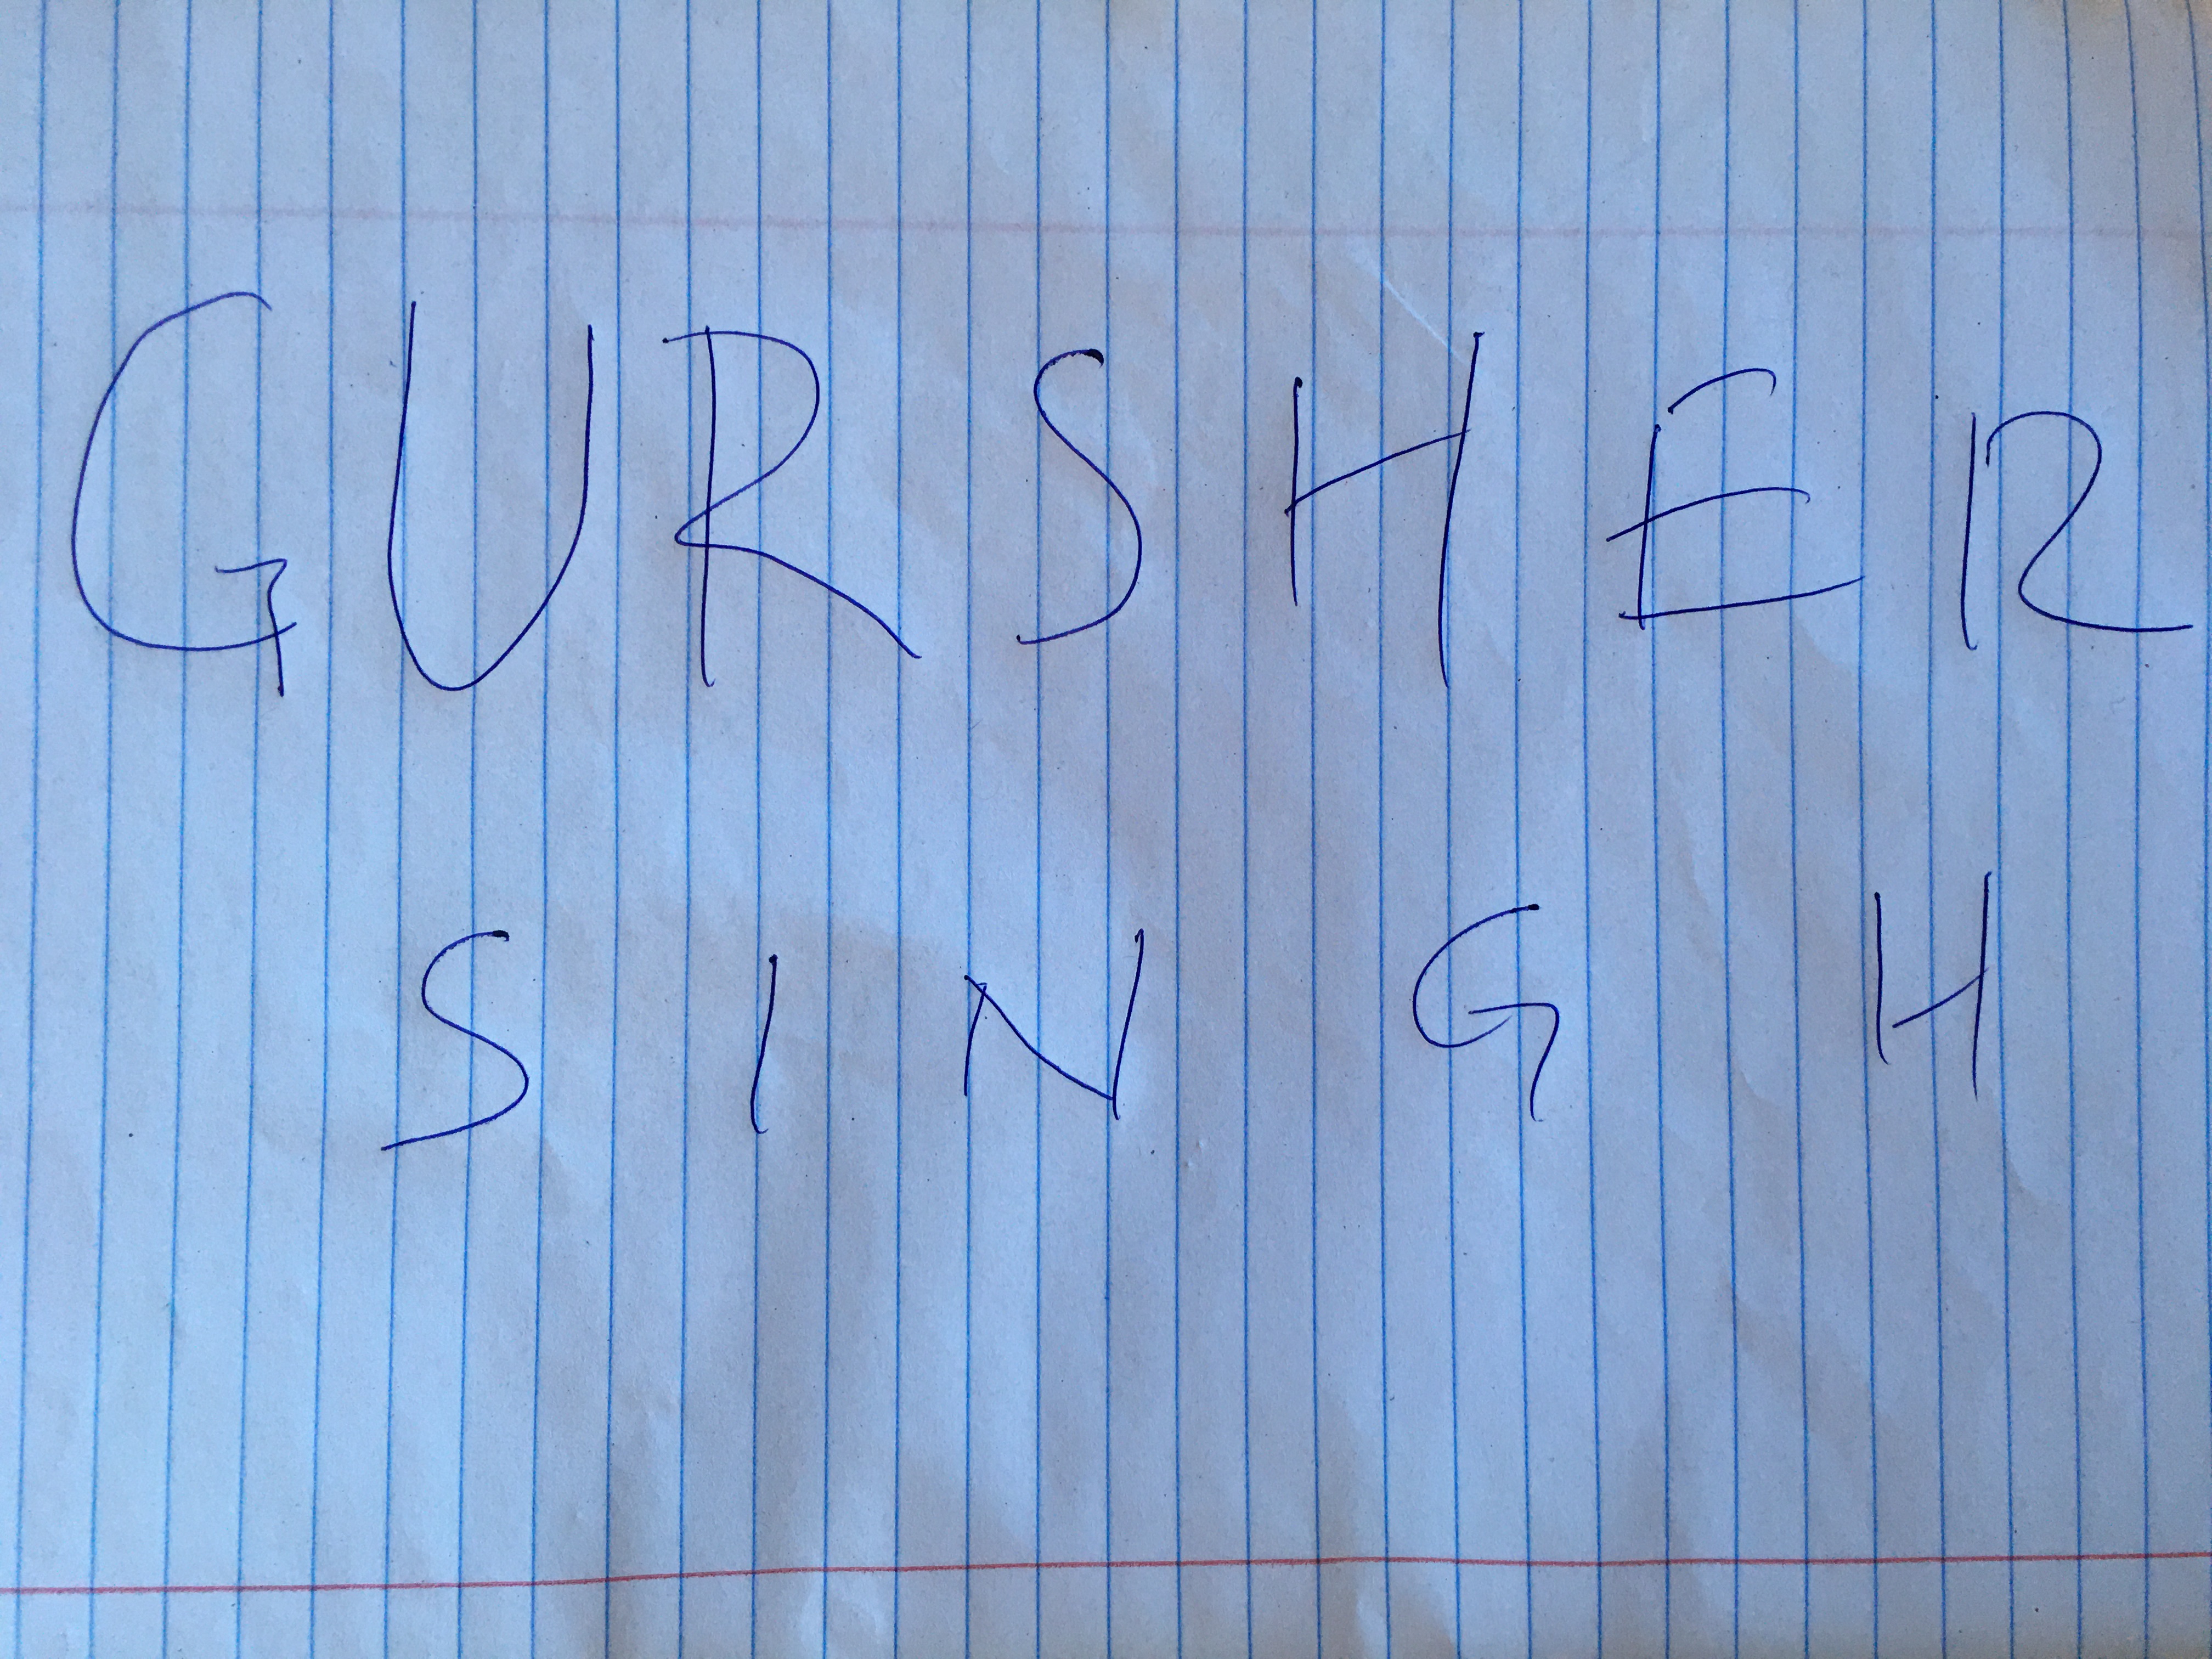 GURSHER
SINGH